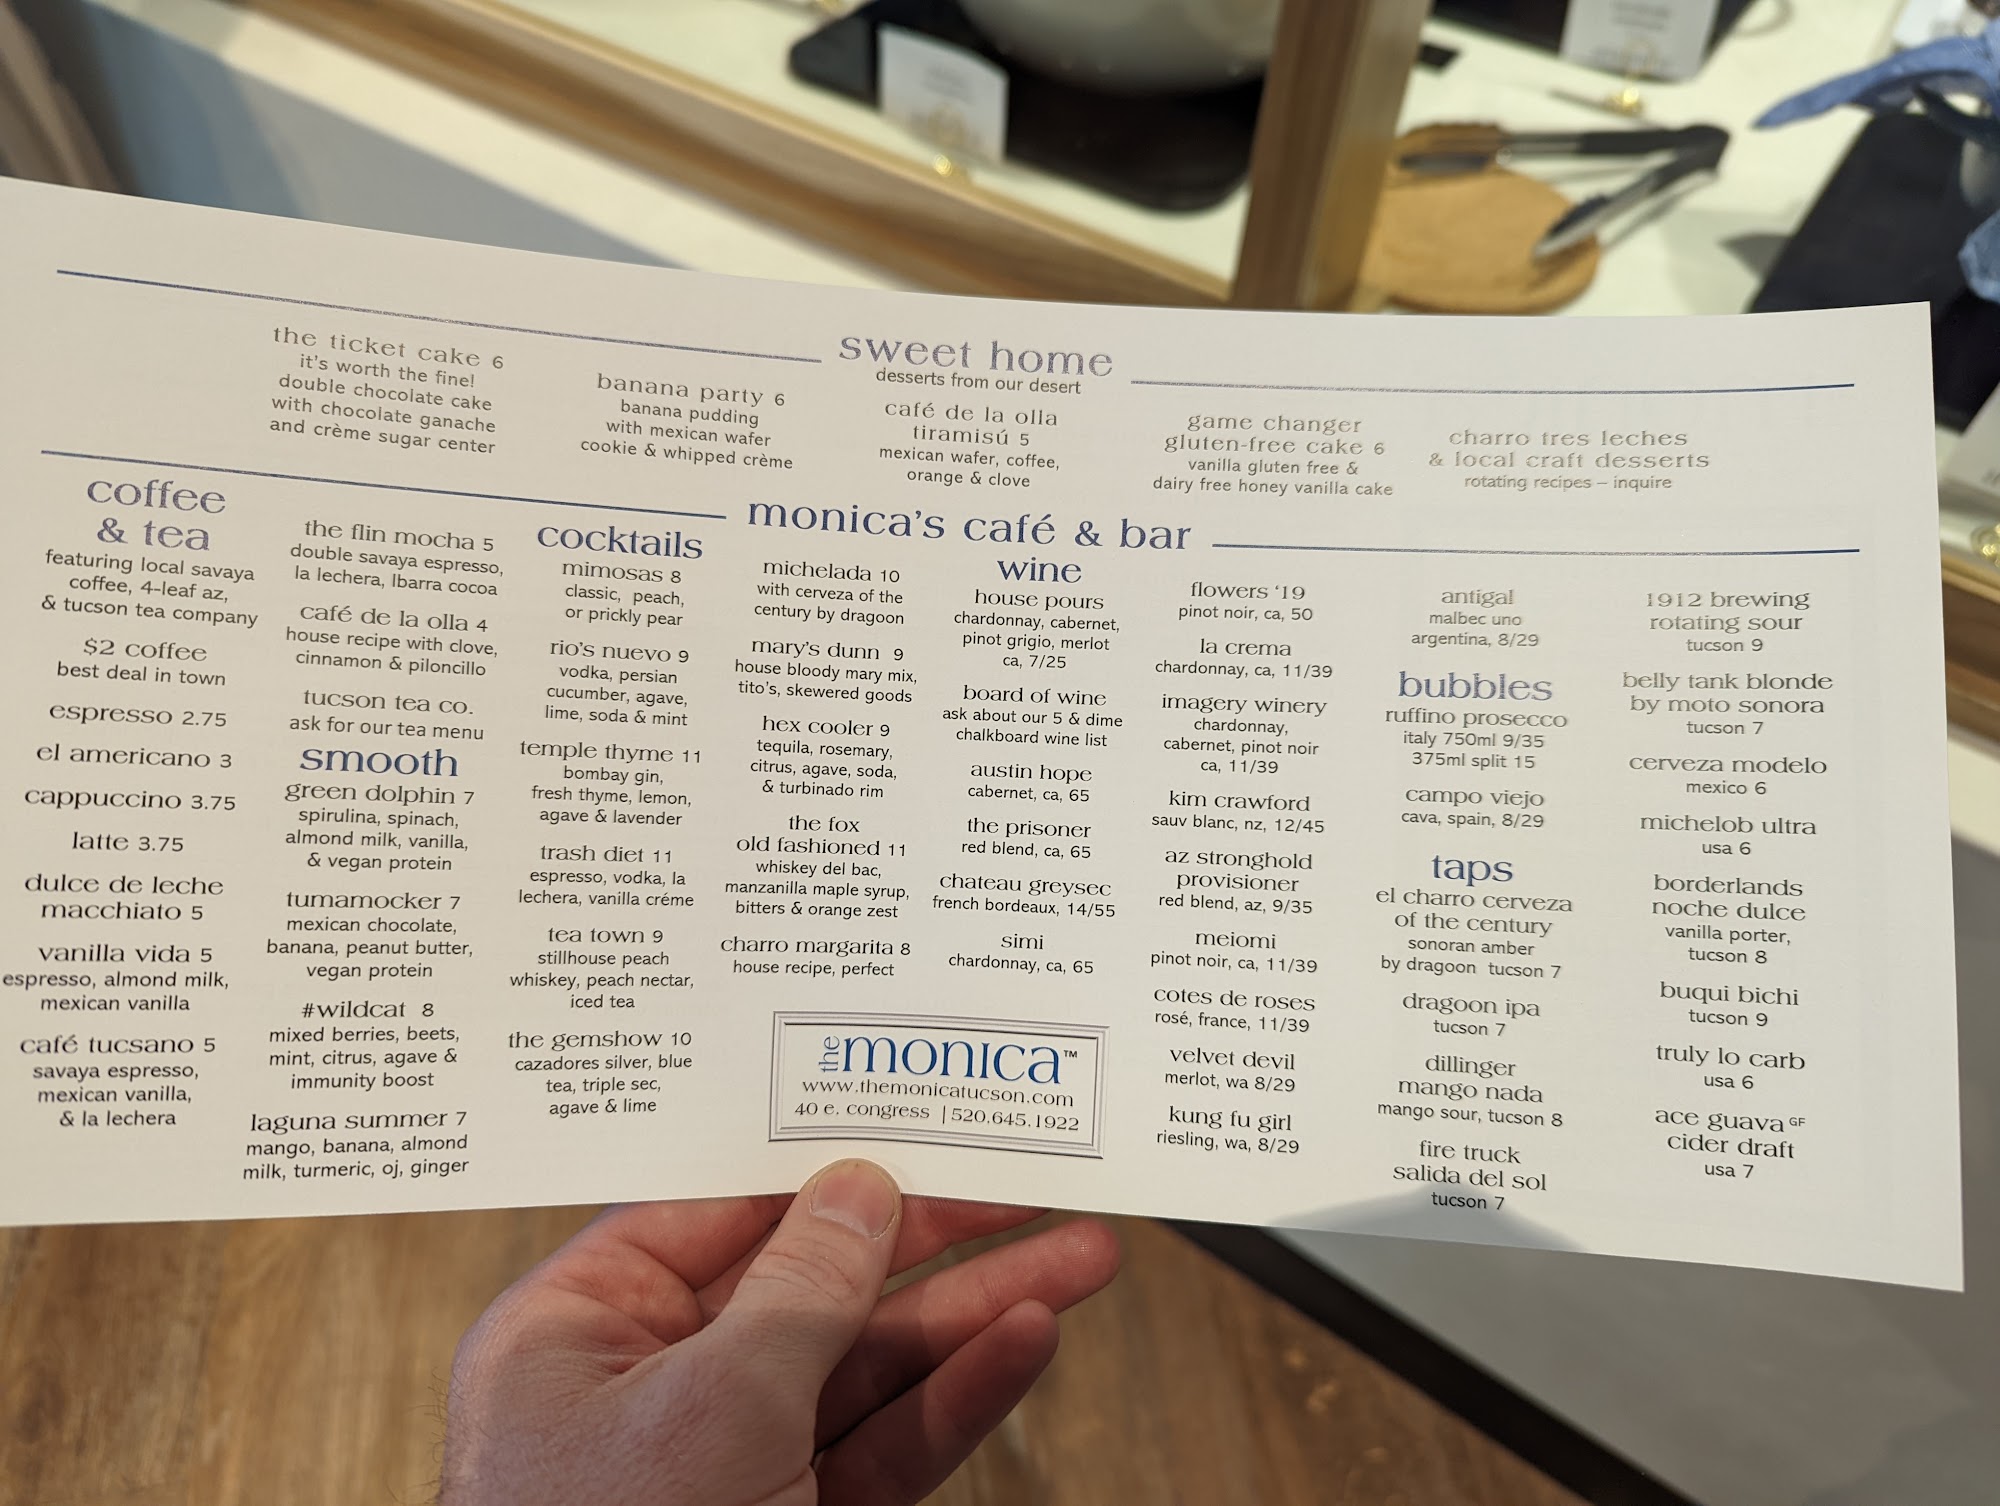 sweet home
desserts from our desert
the ticket cake 6
it's worth the fine!
double chocolate cake
with chocolate ganache
and crème sugar center
banana party 6
banana pudding
with mexican wafer
cookie & whipped crème
café de la olla
tiramisú 5
mexican wafer, coffee,
orange & clove
game changer
gluten-free cake 6
vanilla gluten free &
dairy free honey vanilla cake
charro tres leches
& local craft desserts
rotating recipes – inquire
monica's café & bar
coffee
& tea
featuring local savaya
coffee, 4-leaf az,
& tucson tea company
$2 coffee
best deal in town
espresso 2.75
el americano 3
cappuccino 3.75
latte 3.75
dulce de leche
macchiato 5
vanilla vida 5
espresso, almond milk,
mexican vanilla
café tucsano 5
savaya espresso,
mexican vanilla,
& la lechera
the flin mocha 5
double savaya espresso,
la lechera, Ibarra cocoa
café de la olla 4
house recipe with clove,
cinnamon & piloncillo
tucson tea co.
ask for our tea menu
smooth
green dolphin 7
spirulina, spinach,
almond milk, vanilla,
& vegan protein
tumamocker 7
mexican chocolate,
banana, peanut butter,
vegan protein
#wildcat 8
mixed berries, beets,
mint, citrus, agave &
immunity boost
laguna summer 7
mango, banana, almond
milk, turmeric, oj, ginger
cocktails
mimosas 8
classic, peach,
or prickly pear
rio's nuevo 9
vodka, persian
cucumber, agave,
lime, soda & mint
temple thyme 11
bombay gin,
fresh thyme, lemon,
agave & lavender
trash diet 11
espresso, vodka, la
lechera, vanilla créme
tea town 9
stillhouse peach
whiskey, peach nectar,
iced tea
the gemshow 10
cazadores silver, blue
tea, triple sec,
agave & lime
michelada 10
with cerveza of the
century by dragoon
mary's dunn 9
house bloody mary mix,
tito's, skewered goods
hex cooler 9
tequila, rosemary,
citrus, agave, soda,
& turbinado rim
the fox
old fashioned 11
whiskey del bac,
manzanilla maple syrup,
bitters & orange zest
charro margarita 8
house recipe, perfect
wine
house pours
chardonnay, cabernet,
pinot grigio, merlot
ca, 7/25
board of wine
ask about our 5 & dime
chalkboard wine list
austin hope
cabernet, ca, 65
the prisoner
red blend, ca, 65
chateau greysec
french bordeaux, 14/55
simi
chardonnay, ca, 65
flowers '19
pinot noir, ca, 50
la crema
chardonnay, ca, 11/39
imagery winery
chardonnay,
cabernet, pinot noir
ca, 11/39
kim crawford
sauv blanc, nz, 12/45
az stronghold
provisioner
red blend, az, 9/35
meiomi
pinot noir, ca, 11/39
cotes de roses
rosé, france, 11/39
velvet devil
merlot, wa 8/29
kung fu girl
riesling, wa, 8/29
antigal
malbec uno
argentina, 8/29
bubbles
ruffino prosecco
italy 750ml 9/35
375ml split 15
campo viejo
cava, spain, 8/29
taps
el charro cerveza
of the century
sonoran amber
by dragoon tucson 7
dragoon ipa
tucson 7
dillinger
mango nada
mango sour, tucson 8
fire truck
salida del sol
tucson 7
1912 brewing
rotating sour
tucson 9
belly tank blonde
by moto sonora
tucson 7
cerveza modelo
mexico 6
michelob ultra
usa 6
borderlands
noche dulce
vanilla porter,
tucson 8
buqui bichi
tucson 9
truly lo carb
usa 6
ace guava GF
cider draft
usa 7
the monica™
www.themonicatucson.com
40 e. congress | 520.645.1922